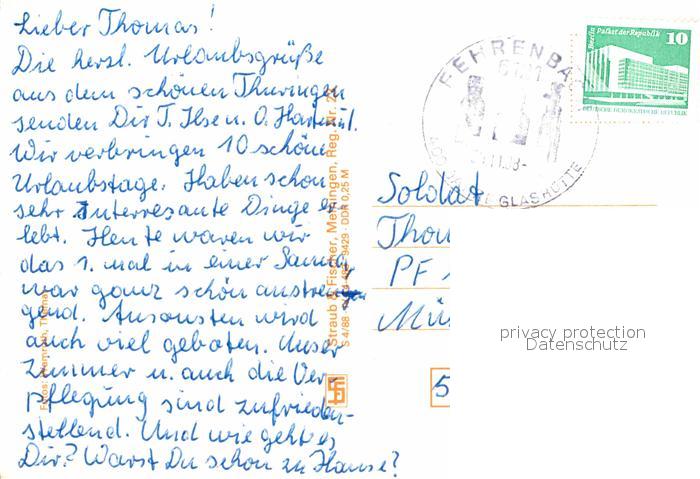 Lieber Thomas!
Die herzl. Urlaubsgrüße
aus dem schönen Thüringen
senden Dir T. Ilse u. O. Hartmut.
Wir verbringen 10 schöne
Urlaubstage. Haben schon
sehr interresante Dinge er
lebt. Heute waren wir
das 1. mal in einer Sauna,
war ganz schön anstren
gend. Ansonsten wird
auch viel geboten. Unser
Zimmer u. auch die Ver
pflegung sind zufrieden-
stellend. Und wie geht es
Dir? Warst Du schon zu Hause?
Straub & Fischer, Meiningen, Reg. Nr.
S 4/88 9429 · DDR 0,25 M
Fotos:
FEHRENBA
GLASHÜTTE
Berlin Palast der Republik 10
DEUTSCHE DEMOKRATISCHE REPUBLIK
Soldat
Thom
PF
Mü
5
privacy protection
Datenschutz